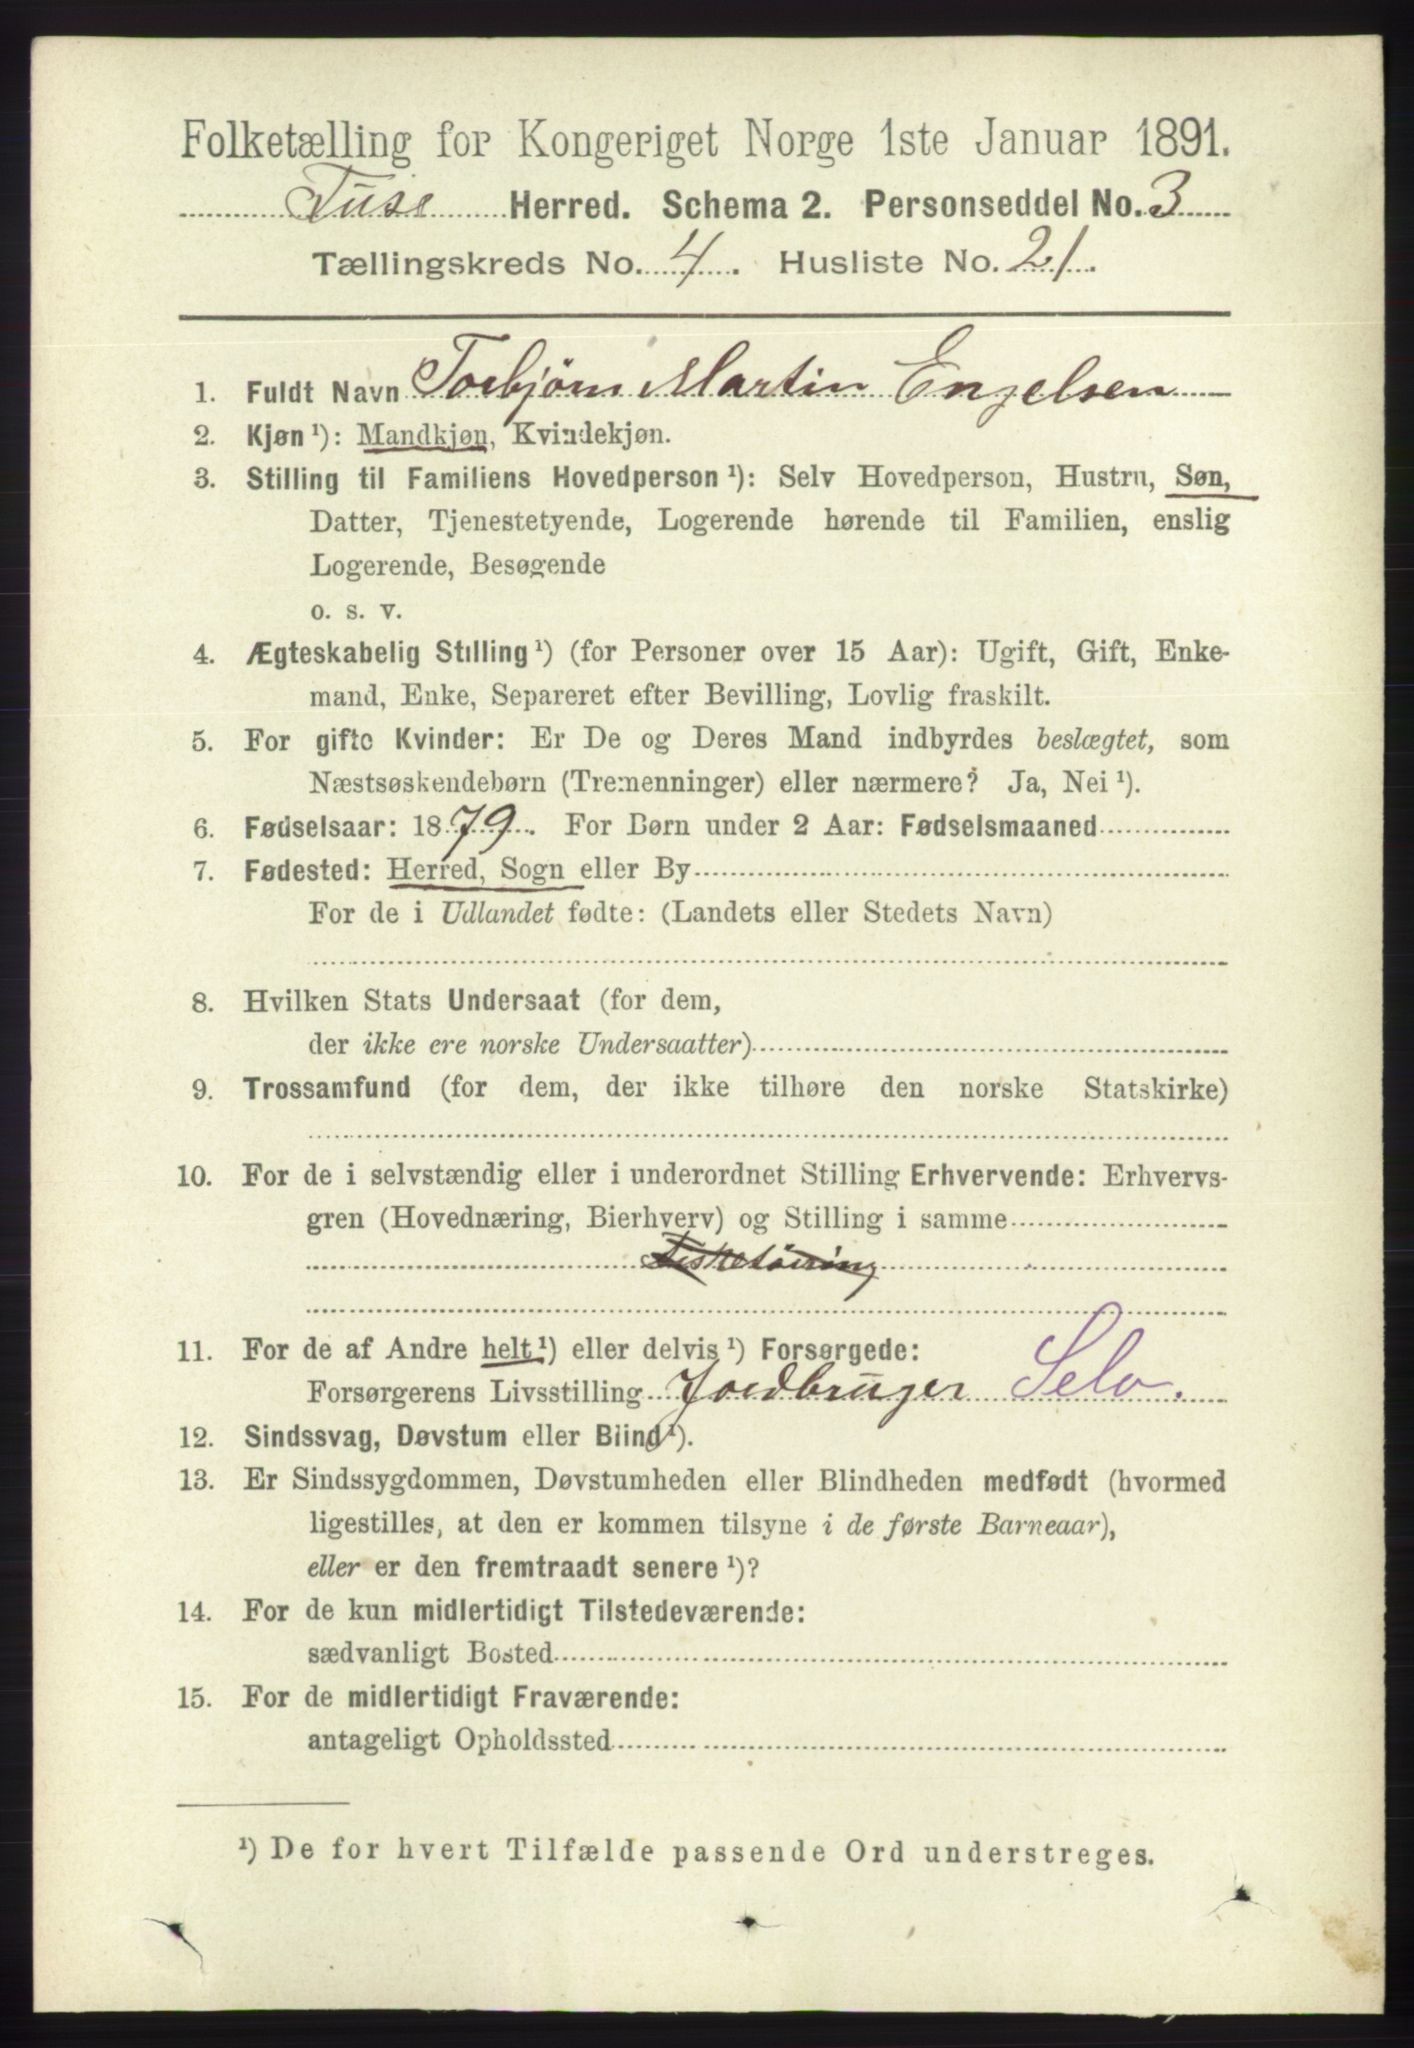 Folketælling for Kongeriget Norge 1ste Januar 1891.
Tuse Herred. Schema 2. Personseddel No. 3
Tællingskreds No. 4. Husliste No. 21.
1. Fuldt Navn Torbjørn Martin Engelsen
2. Kjøn ¹): Mandkjøn, Kvindekjøn.
3. Stilling til Familiens Hovedperson ¹): Selv Hovedperson, Hustru, Søn,
Datter, Tjenestetyende, Logerende hørende til Familien, enslig
Logerende, Besøgende
o. s. v.
4. Ægteskabelig Stilling ¹) (for Personer over 15 Aar): Ugift, Gift, Enke-
mand, Enke, Separeret efter Bevilling, Lovlig fraskilt.
5. For gifte Kvinder: Er De og Deres Mand indbyrdes beslægtet, som
Næstsøskendebørn (Tremenninger) eller nærmere? Ja, Nei ¹).
6. Fødselsaar: 1879. For Børn under 2 Aar: Fødselsmaaned
7. Fødested: Herred, Sogn eller By
For de i Udlandet fødte: (Landets eller Stedets Navn)
8. Hvilken Stats Undersaat (for dem,
der ikke ere norske Undersaatter)
9. Trossamfund (for dem, der ikke tilhøre den norske Statskirke)
10. For de i selvstændig eller i underordnet Stilling Erhvervende: Erhvervs-
gren (Hovednæring, Bierhverv) og Stilling i samme
11. For de af Andre helt ¹) eller delvis ¹) Forsørgede:
Forsørgerens Livsstilling Jordbruger Selv.
12. Sindssvag, Døvstum eller Blind ¹).
13. Er Sindssygdommen, Døvstumheden eller Blindheden medfødt (hvormed
ligestilles, at den er kommen tilsyne i de første Barneaar),
eller er den fremtraadt senere ¹)?
14. For de kun midlertidigt Tilstedeværende:
sædvanligt Bosted
15. For de midlertidigt Fraværende:
antageligt Opholdssted
¹) De for hvert Tilfælde passende Ord understreges.